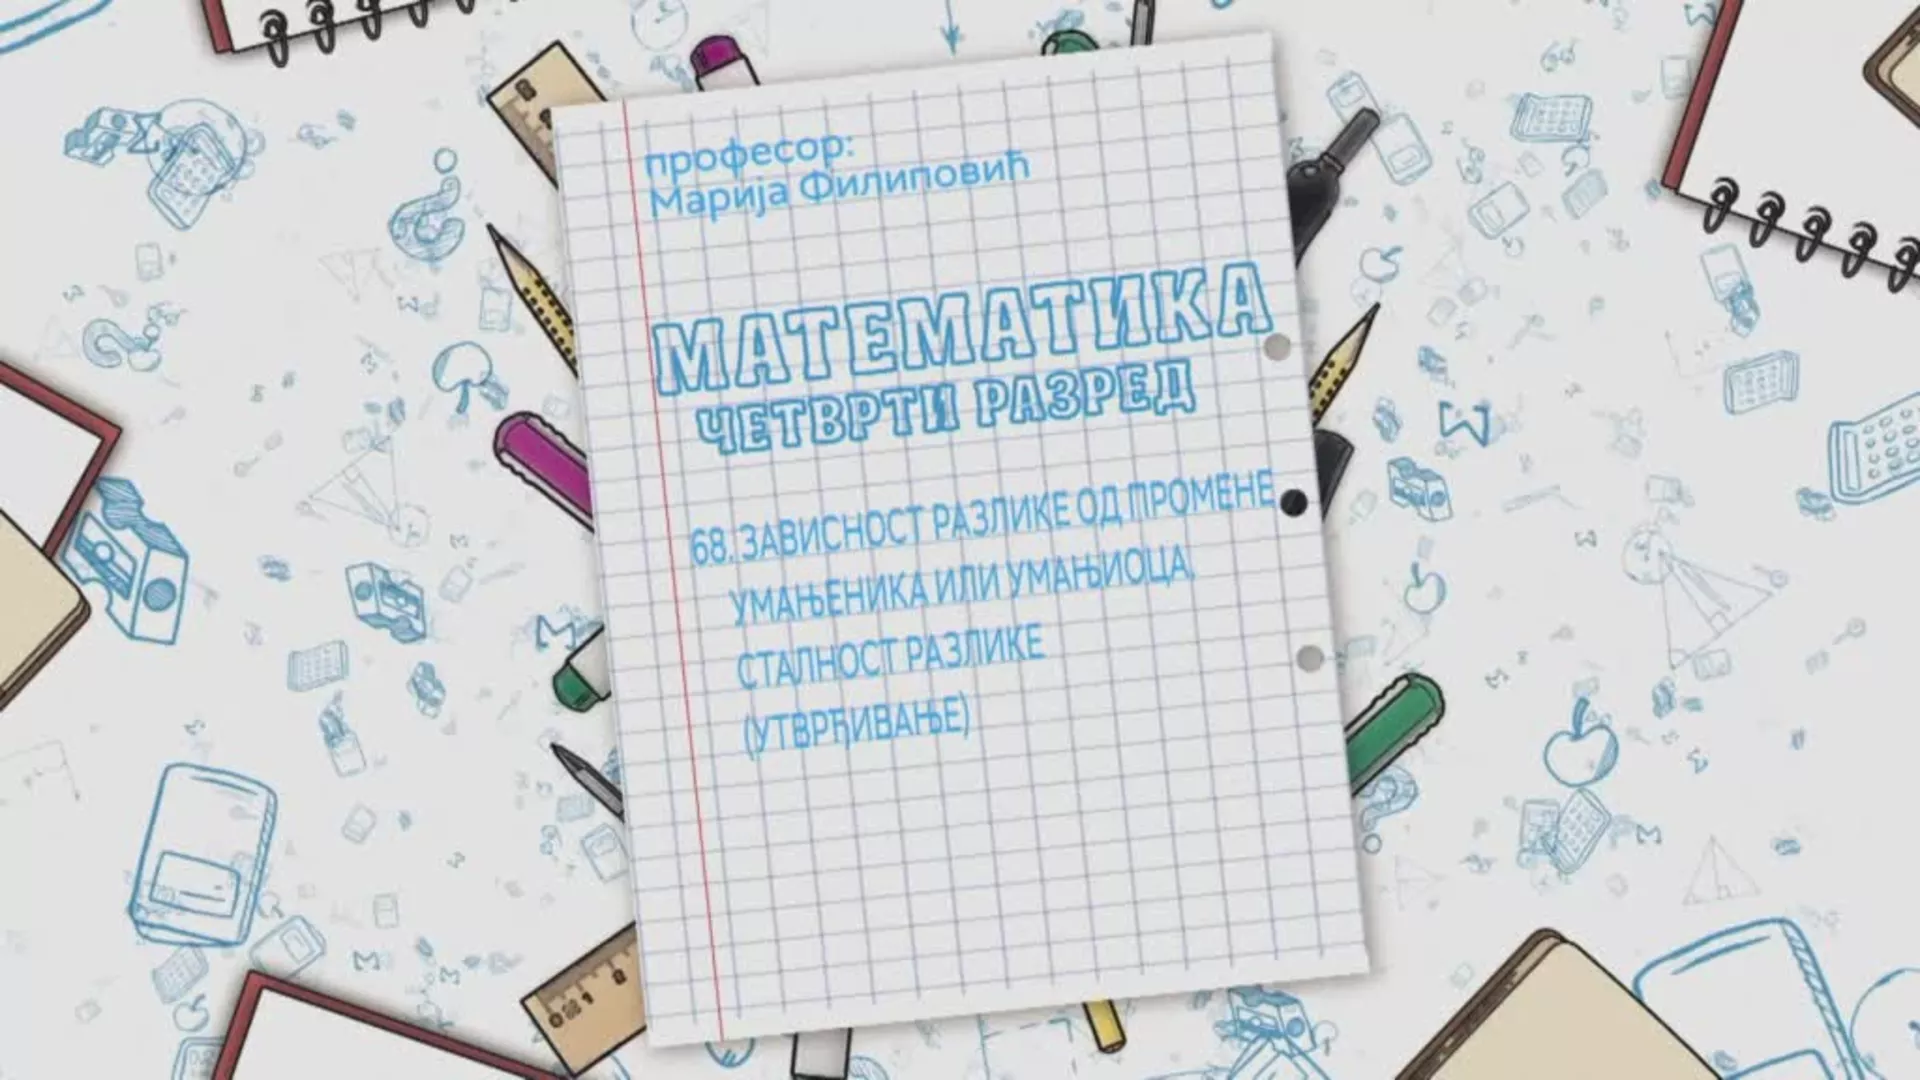 професор:
Марија Филиповић
МАТЕМАТИКА
ЧЕТВРТИ РАЗРЕД
68. ЗАВИСНОСТ РАЗЛИКЕ ОД ПРОМЕНЕ
УМАЊЕНИКА ИЛИ УМАЊИОЦА,
СТАЛНОСТ РАЗЛИКЕ
(УТВРЂИВАЊЕ)